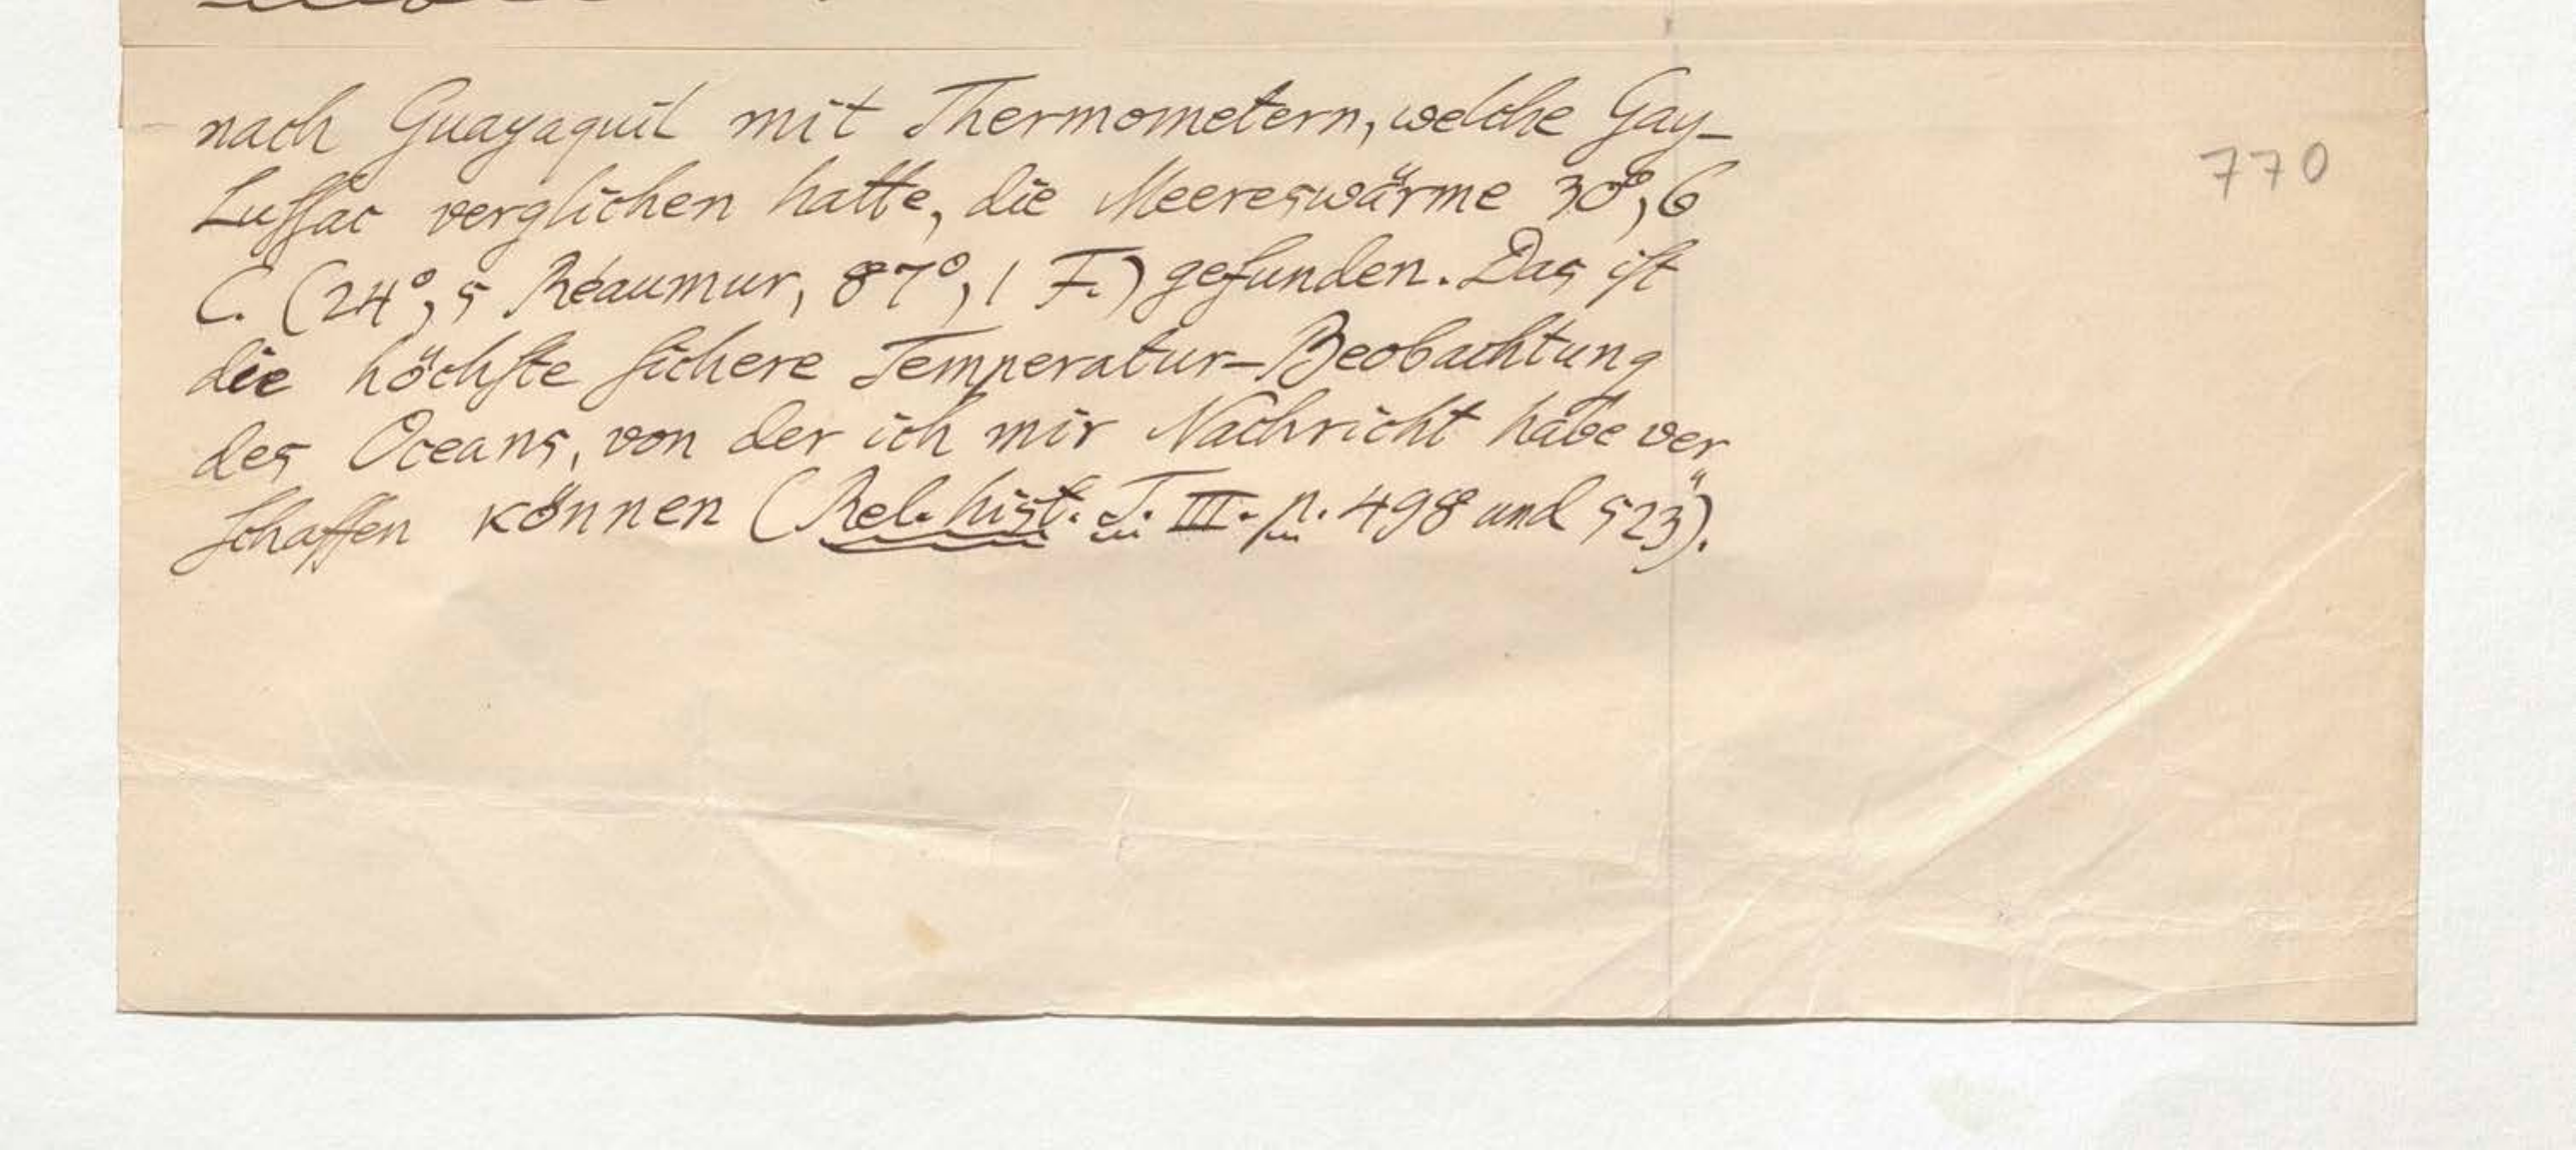 nach Guayaquil mit Thermometern, welche Gay-
770
Luſſac verglichen hatte, die Meereswärme 30°,6
C. (24°,5 Réaumur, 87°,1 F.) gefunden. Das iſt
die höchſte ſichere Temperatur-Beobachtung
des Oceans, von der ich mir Nachricht habe ver
ſchaffen können (Rel. hist. T. III. p. 498 und 523").